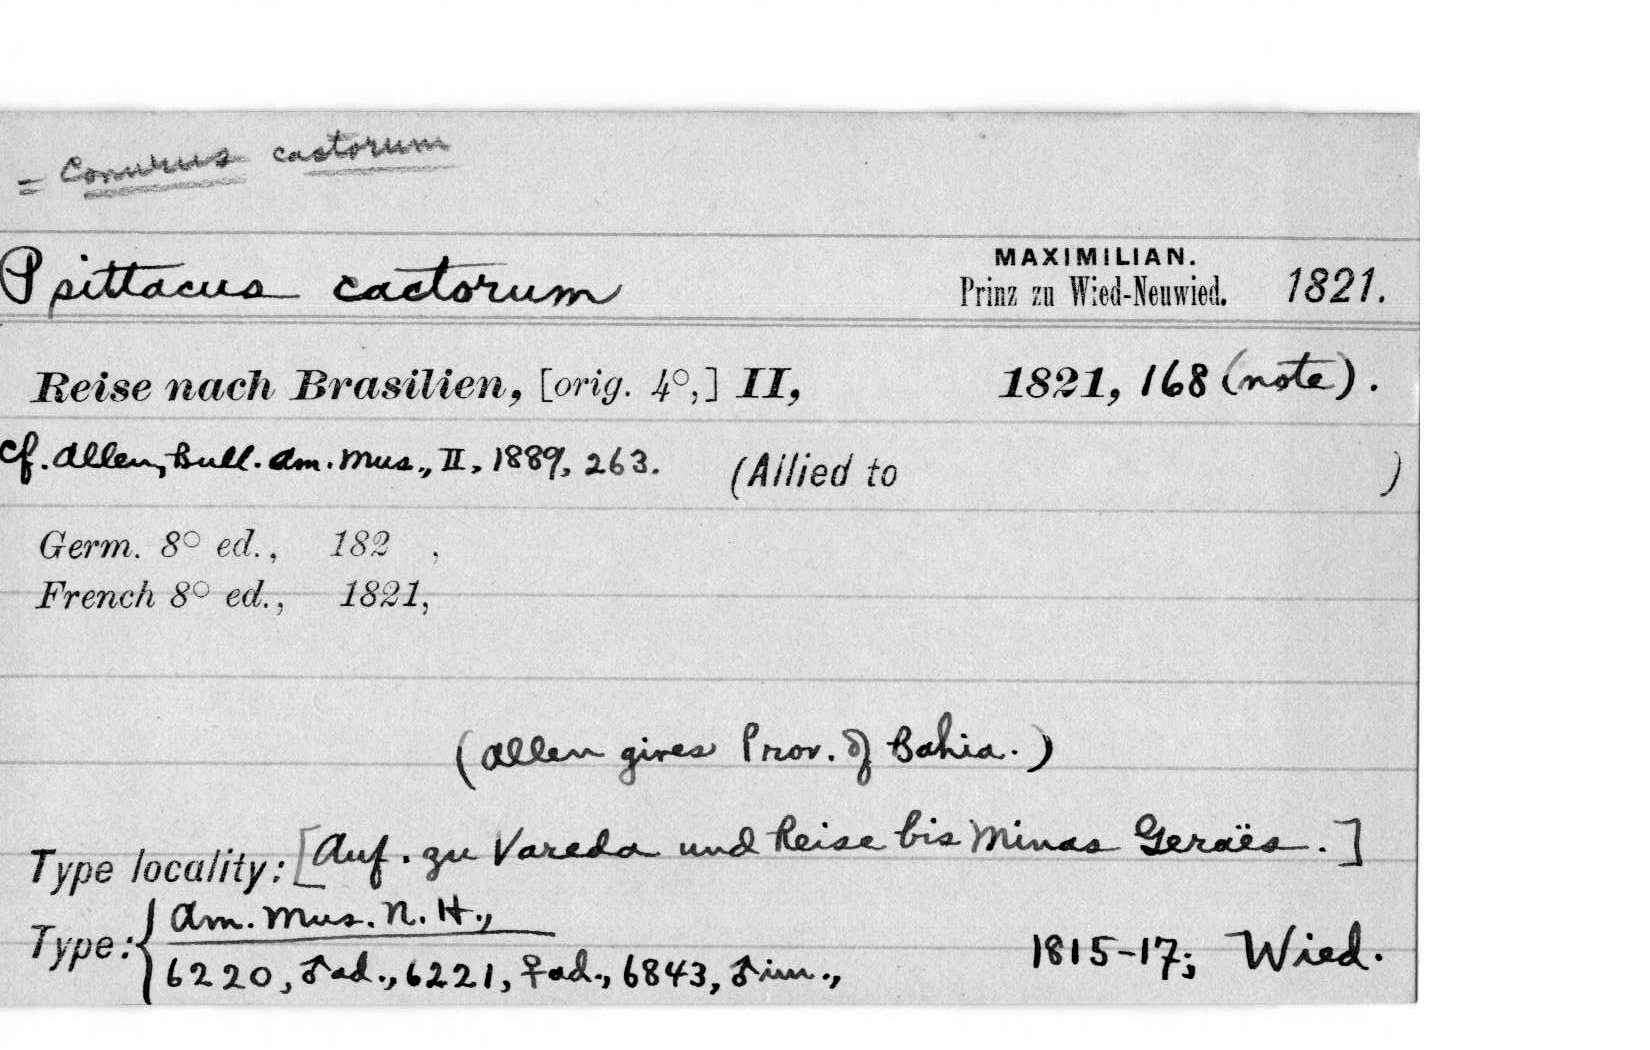 = Conurus cactorum
Psittacus cactorum
MAXIMILIAN.
Prinz zu Wied-Neuwied. 1821.
Reise nach Brasilien, [orig. 4°,] II, 1821, 168 (note).
cf. Allen, Bull. Am. Mus., II, 1889, 263. (Allied to )
Germ. 8° ed., 182 ,
French 8° ed., 1821,
(Allen gives Prov. of Bahia.)
Type locality: [Auf. zu Vareda und Reise bis Minas Geraës.]
Type: { Am. Mus. N. H.,
6220, ♂ad., 6221, ♀ad., 6843, ♂im., 1815-17; Wied.